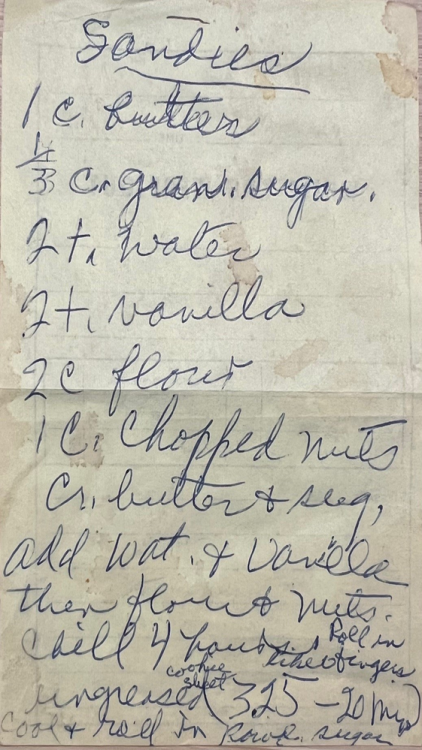 Sandies
1 c. butter
1/3 c. gran. sugar.
2 t. water
2 t. vanilla
2 c flour
1 c. chopped nuts
Cr. butter & sug,
add wat. & vanilla
then flour & nuts.
chill 4 hours. Roll in
like fingers
ungreased cookie sheet (325 - 20 min)
Cool & roll in Powd. sugar